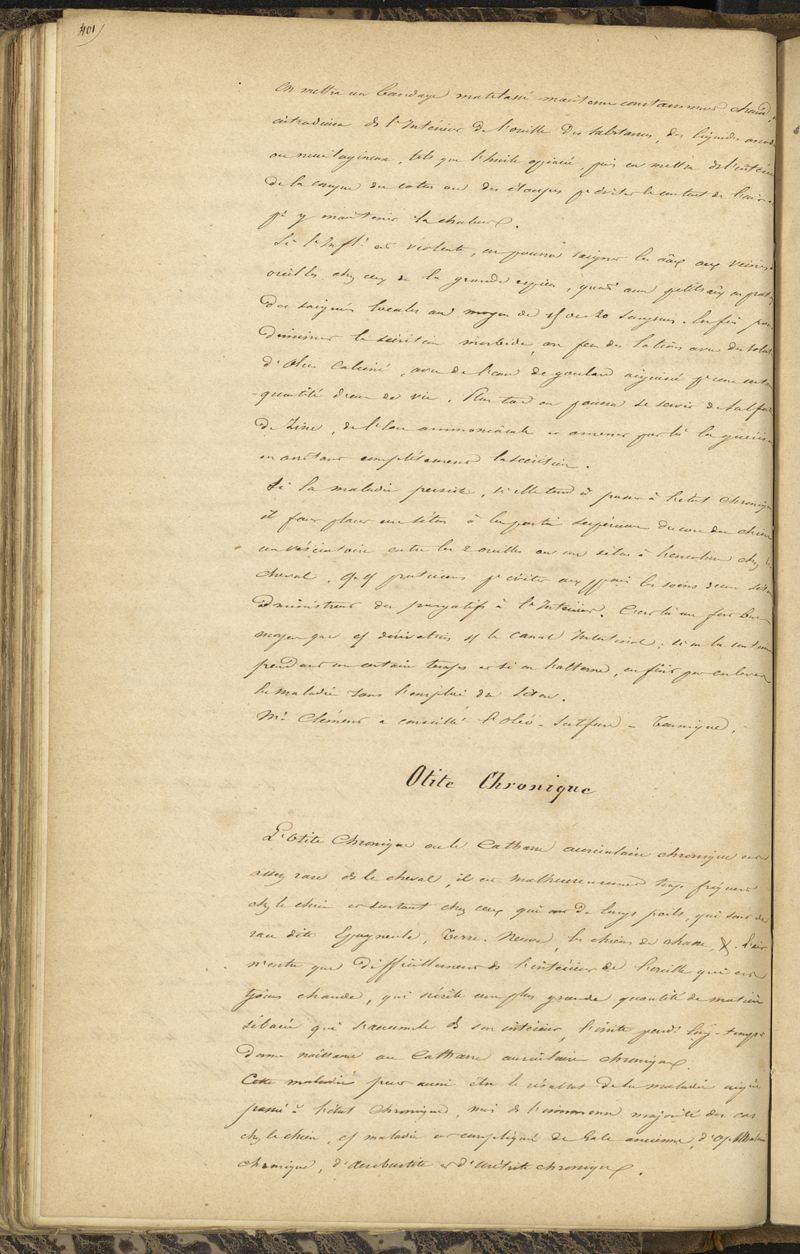 401)
On mettra un bandage matelassé maintenu constamment chaud,
introduira ds l'Intérieur de l'oreille des substances, des liquides
ou mucilagineux, tels que l'huile opiacée, puis on mettra ds l'intéri
de la conque du coton ou des étoupes pr éviter le contact de l'air
pr y maintenir la chaleur.
Si l'Inflon est violente, on pourra saigner les aux veines
oreilles chez ceux de la grande espèce, quant aux petits on prati
des saignées locales au moyen de 15 ou 20 sangsues. Enfin pour
diminuer la sécrétion morbide, on fera des lotions avec du sulfat
d'alun calciné, avec de l'eau de goulard aiguisée pr une certai
quantité d'eau de vie. Plus tard on pourra se servir de sulfat
de Zinc, de l'eau ammoniacale et amener par là la guérison
en arrêtant complètement la sécrétion.
Si la maladie persiste, si elle tend à passer à l'état chronique
il faut placer un séton à la partie supérieure du cou du chien
un vésicatoire entre les 2 oreilles ou un séton à l'encolure chez le
cheval. Qq praticiens pr éviter aux les soins d'un séton
administrent des purgatifs à l'Intérieur. C'est là un fort bon
moyen que cs dérivatifs sr le canal Intestinal; si on les continue
pendant un certain temps et si on alterne, on finit par enlever
la maladie sans l'emploi du séton.
Mr Clément a conseillé l'oléo-sulfure - Tannique.
Otite Chronique
L'Otite Chronique ou le Catharre auriculaire chronique est
assez rare ds le cheval, il est malheureusement trop fréquent
chez le chien et surtout chez ceux qui ont de longs poils, qui sont de
race dite Epagneule, Terre-Neuve, les chiens de chasse, &. L'air
n'entre que difficillement ds l'intérieur de l'oreille qui est
tjours chaude, qui sécrète une plus grande quantité de matière
sébacée qui s'accumule ds son intérieur, l'irrite pendt long-temps
donne naissance au Catharre auriculaire chronique.
Cette maladie peut aussi être le résultat de la maladie aiguë
passée à l'état chronique, mais ds l'immense majorité des cas
chez le chien, cte maladie est compliquée de gale ancienne, d'Ophthalmie
chronique, d' et d'urétrite chronique.